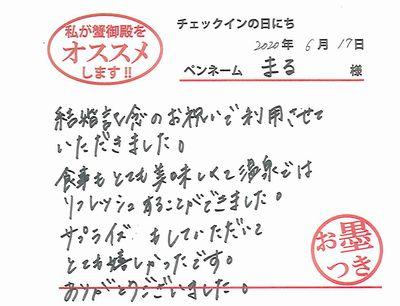 私が蟹御殿を
オススメ
します!!
チェックインの日にち
2020年 6月 17日
ペンネーム まる 様
結婚記念のお祝いで利用させて
いただきました。
食事もとても美味しくて温泉では
リフレッシュすることができました。
サプライズ もしていただいて
とても嬉しかったです。
ありがとうございました。
お墨
つき